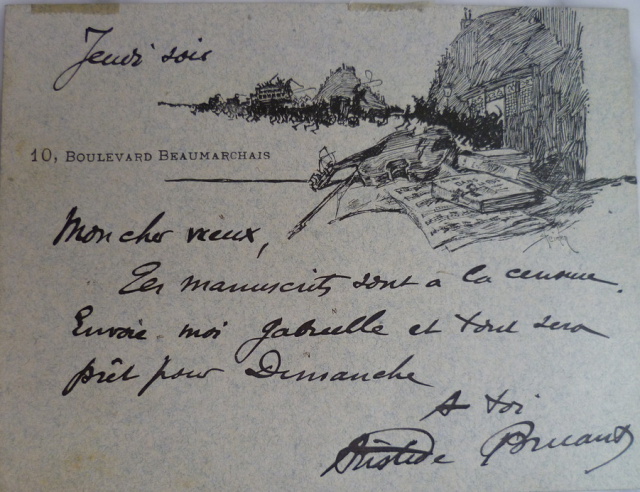 Jeudi soir
10, BOULEVARD BEAUMARCHAIS
Mon cher vieux,
Les manuscrits sont à la censure.
Envoie moi Gabrielle et tout sera
prêt pour Dimanche
A toi
Aristide Bruant